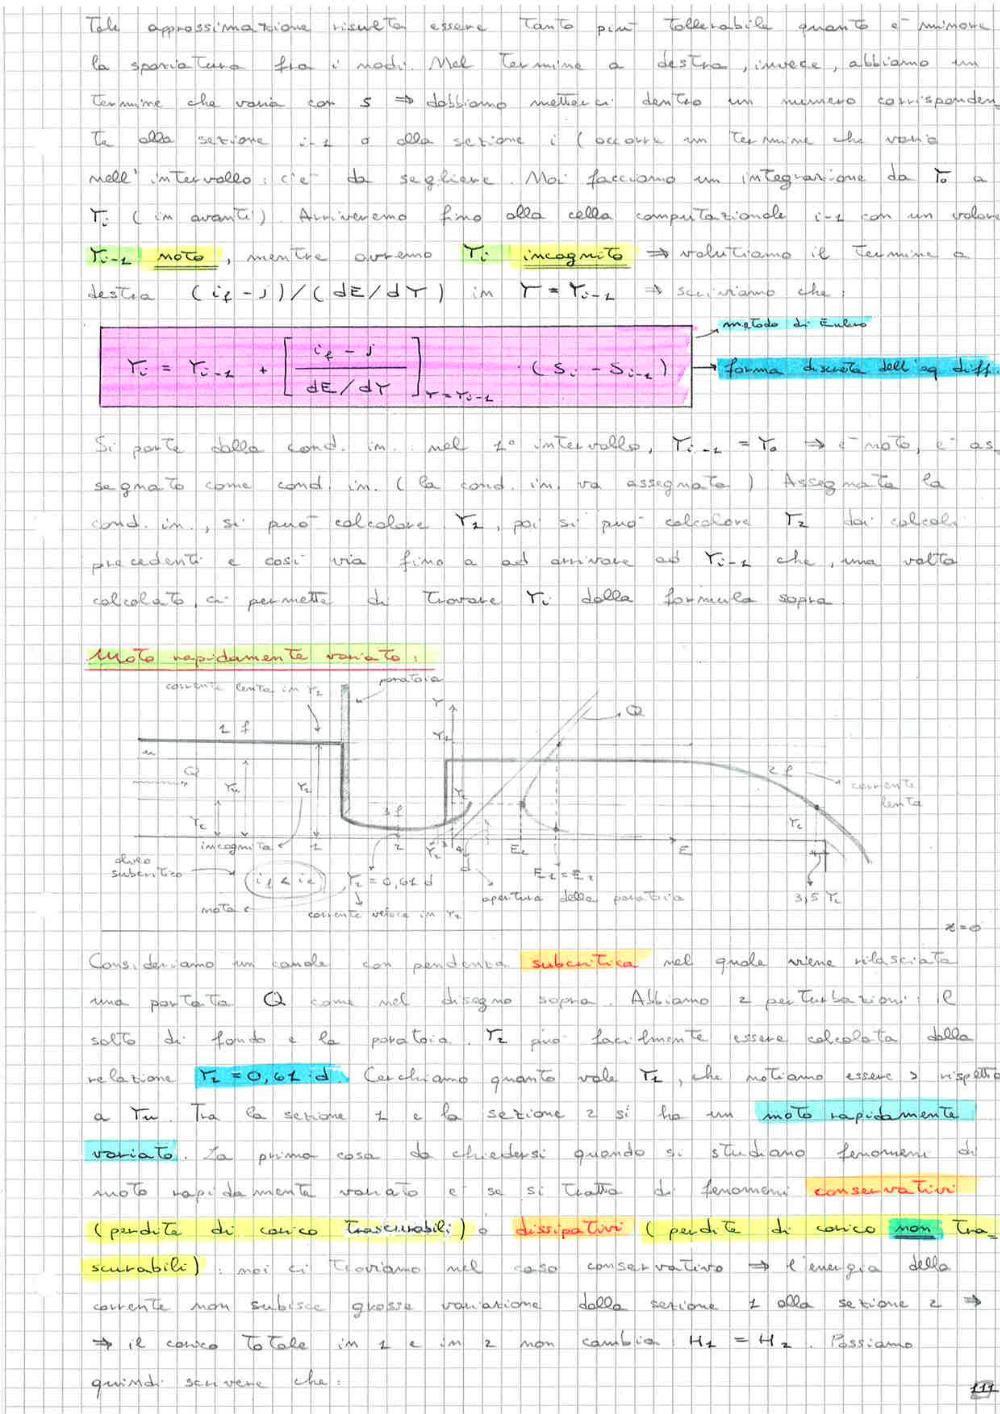 Tale approssimazione risulta essere tanto più tollerabile quanto è minore
la spaziatura fra i nodi. Nel termine a destra, invece, abbiamo un
termine che varia con s ⇒ dobbiamo metterci dentro un numero corrisponden
te alla sezione i-1 o alla sezione i (occorre un termine che varia
nell'intervallo: c'è da scegliere. Noi facciamo un integrazione da Y₀ a
Yi (in avanti). Arriveremo fino alla cella computazionale i-1 con un valore
Yi-1 noto, mentre avremo Yi incognito ⇒ valutiamo il termine a
destra (if - j)/(dE/dY) in Y = Yi-1 ⇒ scriviamo che:
metodo di Eulero
Yi = Yi-1 + [(if - j)/(dE/dY)]Y=Yi-1 · (Si - Si-1)
forma discreta dell'eq diff.
Si parte dalla cond. in.: nel 1° intervallo, Yi-1 = Y₀ ⇒ è noto, è as
segnato come cond. in. (la cond. in. va assegnata) Assegnata la
cond. in., si può calcolare Y1, poi si può calcolare Y2 dai calcoli
precedenti e così via fino a ad arrivare ad Yi-1 che, una volta
calcolato, ci permette di trovare Yi dalla formula sopra.
Moto rapidamente variato:
corrente lenta in Y1
paratoia
Y
Q
Y1
1 f
2 f
u
Q
Yu
Y1
Yc
corrente
lenta
3 f
Yc
incognita
1
2
Ec
E
alveo
subcritico
if < ic
Y2 = 0,61 d
d
E1 = E2
apertura della paratoia
3,5 Yc
nota
corrente veloce in Y2
z=0
Consideriamo un canale con pendenza subcritica nel quale viene rilasciata
una portata Q come nel disegno sopra. Abbiamo 2 perturbazioni: il
salto di fondo e la paratoia. Y2 può facilmente essere calcolata dalla
relazione Y2 = 0,61·d. Cerchiamo quanto vale Y1, che notiamo essere > rispetto
a Yu. Tra la sezione 1 e la sezione 2 si ha un moto rapidamente
variato. La prima cosa da chiedersi quando si studiano fenomeni di
moto rapidamente variato è se si tratta di fenomeni conservativi
(perdite di carico trascurabili) o dissipativi (perdite di carico non tra=
scurabili): noi ci troviamo nel caso conservativo ⇒ l'energia della
corrente non subisce grosse variazione dalla sezione 1 alla sezione 2 ⇒
⇒ il carico totale in 1 e in 2 non cambia: H1 = H2. Possiamo
quindi scrivere che:
111